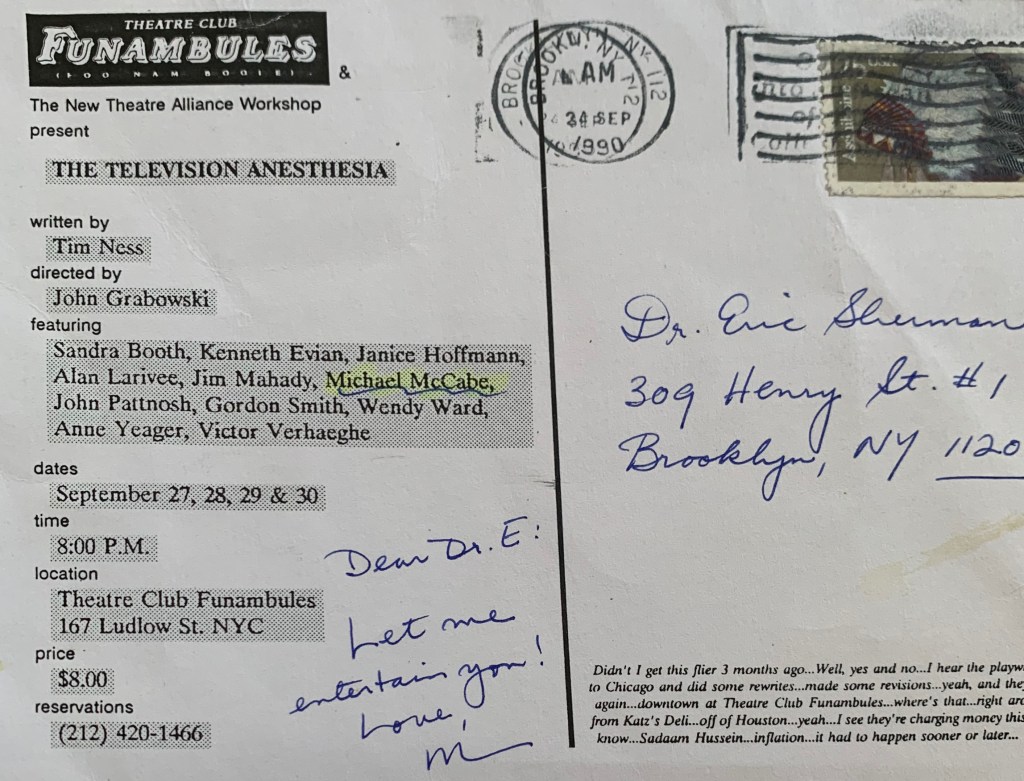 THEATRE CLUB
FUNAMBULES
(FOO NAM BOOLE)
&
The New Theatre Alliance Workshop
present
THE TELEVISION ANESTHESIA
written by
Tim Ness
directed by
John Grabowski
featuring
Sandra Booth, Kenneth Evian, Janice Hoffmann,
Alan Larivee, Jim Mahady, Michael McCabe,
John Pattnosh, Gordon Smith, Wendy Ward,
Anne Yeager, Victor Verhaeghe
dates
September 27, 28, 29 & 30
time
8:00 P.M.
location
Theatre Club Funambules
167 Ludlow St. NYC
price
$8.00
reservations
(212) 420-1466
Dear Dr. E:
Let me
entertain you!
Love,
M
BROOKLYN, NY 112
AM
24 SEP
1990
Dr. Eric Sherman
309 Henry St. #1
Brooklyn, NY 1120
Didn't I get this flier 3 months ago...Well, yes and no...I hear the playw
to Chicago and did some rewrites...made some revisions...yeah, and the
again...downtown at Theatre Club Funambules...where's that...right aro
from Katz's Deli...off of Houston...yeah...I see they're charging money this
know...Sadaam Hussein...inflation...it had to happen sooner or later...